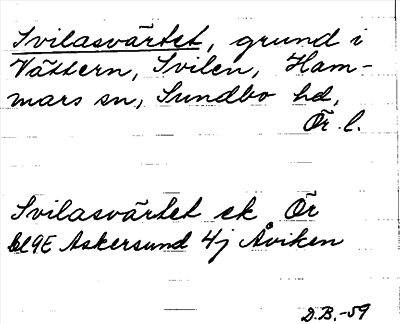 Svilasvärtet, grund i
Vättern, Svilen, Ham-
mars sn, Sundbo hd,
Ör. l.
Svilasvärtet ek Ör
9E Askersund 4j Åviken
D.B.-59